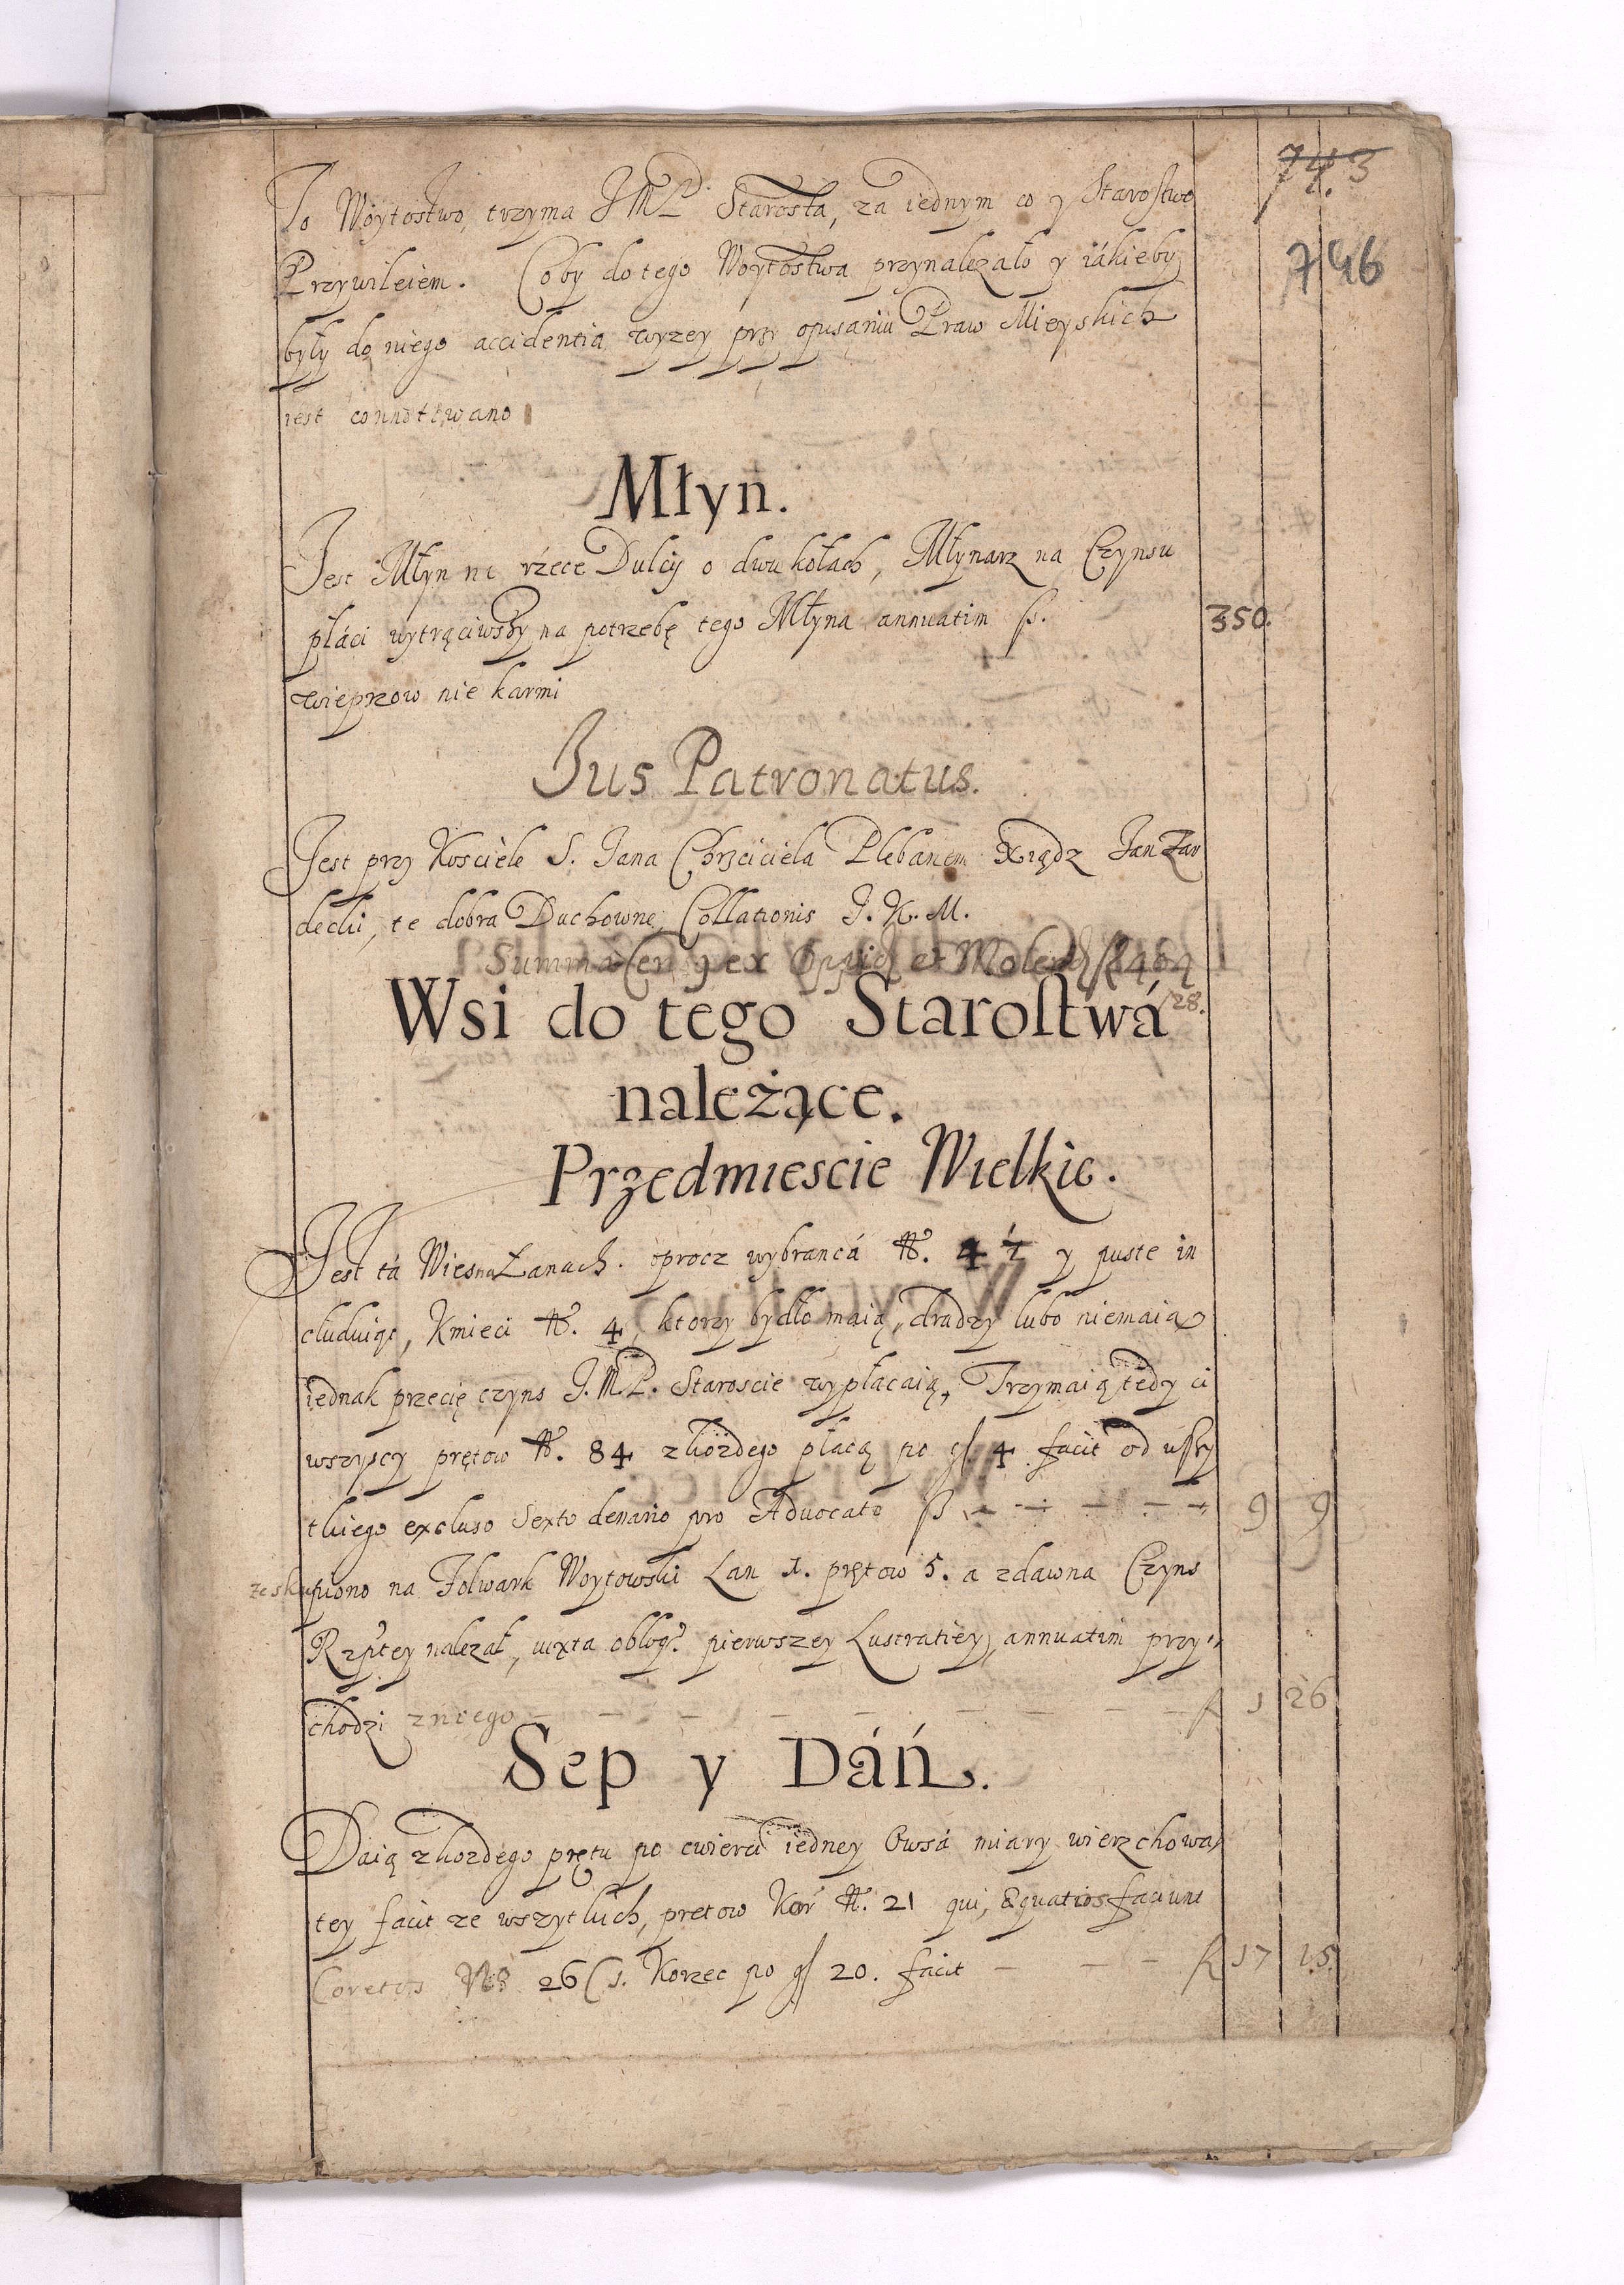 743
746
To Woytostwo trzyma JMP Starosta, za iednym co y Starostwo
Przywileiem. Coby do tego Woytostwa przynalezało y iákieby
były do niego accidentia wyzey przy opisaniu Praw Mieyskich
iest connotowano
Młyn.
Jest Młyn na rzece Dulcy o dwu kołach, Młynarz na Czynsu
płáci wytrąciwszy na potrzebę tego Młyna annuatim fl. 350.
wieprzow nie karmi
Jus Patronatus.
Jest przy Kosciele S. Jana Chrzciciela Plebanem Xiądz Jan Zar
decki, te dobra Duchowne Collationis J. K. M.
Summa Cens9 ex et Molend fl 464
28.
Wsi do tego Starostwá
należące.
Przedmiescie Wielkie.
Jest tá Wies na Łanach. oprocz wybrancá N. 4 ½ y puste in
cluduiąc, Kmieci N. 4, ktorzy bydło maią, drudzy lubo niemaią
iednak przecię czyns J.M.P. Staroscie wypłacaią, Trzymaią tedy ci
wszyscy prętow N. 84 z kozdego płacą po gl 4 facit od wszy
tkiego excluso Sexto denario pro Advocato fl - - - - - 9 9
ze skupiono na Folwark Woytowski Łan 1. prętow 5. a zdawna Czyns
Rzptey nalezał, iuxta obloq. pierwszey Lustratiey, annuatim przy„
chodzi z niego - - - - - - - - - fl 1 26
Sep y Dáń.
Daią z kozdego prętu po cwierci iedney Owsá miary wierzchowa„
tey facit ze wszytkich, pretow Kor N. 21 qui, Æquatios faciunt
Coretos No 26 Cs. Korzec po gl 20. facit - - - fl 17 15.